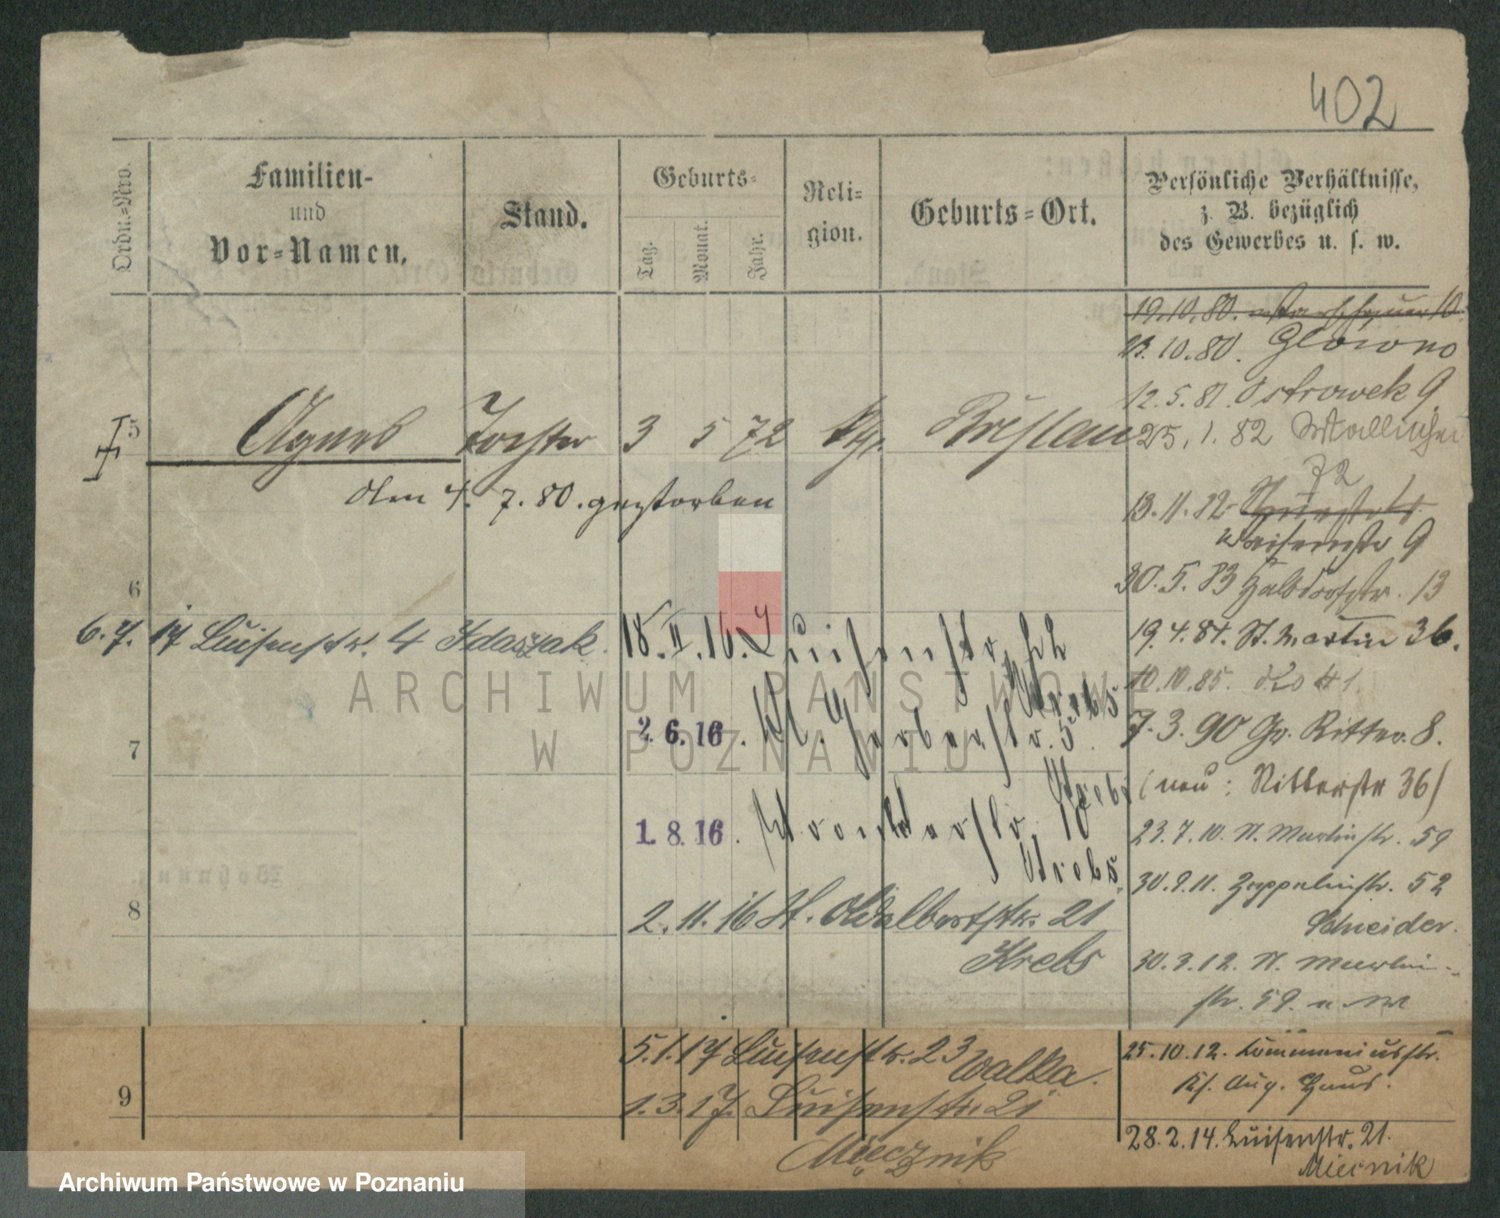 402
Ordn.-Nro.
Familien-
und
Vor-Namen.
Stand.
Geburts-
Tag.
Monat.
Jahr.
Reli-
gion.
Geburts-Ort.
Persönliche Verhältnisse,
z. B. bezüglich
des Gewerbes u. s. w.
19.10.80.
23.10.80. Glowno
12.5.81. Ostrowek 9
5 Agnes Tochter 3 5 72 Breslau
25.1.82 Wallischei
72
den 4. 7. 80. gestorben
13.11.82
Waisenstr 9
6
30.5.83 Halbdorfstr. 13
6.7.17 Luisenstr. 4 Idaszak.
18.II.16. Luisenstr. 22
Krebs
19.4.84. St. Martin 36.
10.10.85. do 41
7
2.6.16. Kl. Gerberstr. 5.
Krebs
7.3.90 Gr. Ritter. 8.
(neu: Ritterstr 36)
1.8.16. 10
Krebs
23.7.10. St. Martinstr. 59
30.9.11. Zeppelinstr. 52
Schneider.
8
2.11.16 St. Adalbertstr. 21
Krebs
30.9.12. St. Martin-
str. 59.
5.1.17 Luisenstr. 23 Walka.
25.10.12. Commeniusstr.
Ks. Aug. Haus.
9
1.3.17. Luisenstr. 21
Mięcznik
28.2.14. Luisenstr. 21.
Miecnik
ARCHIWUM PAŃSTWOW
W POZNANIU
Archiwum Państwowe w Poznaniu